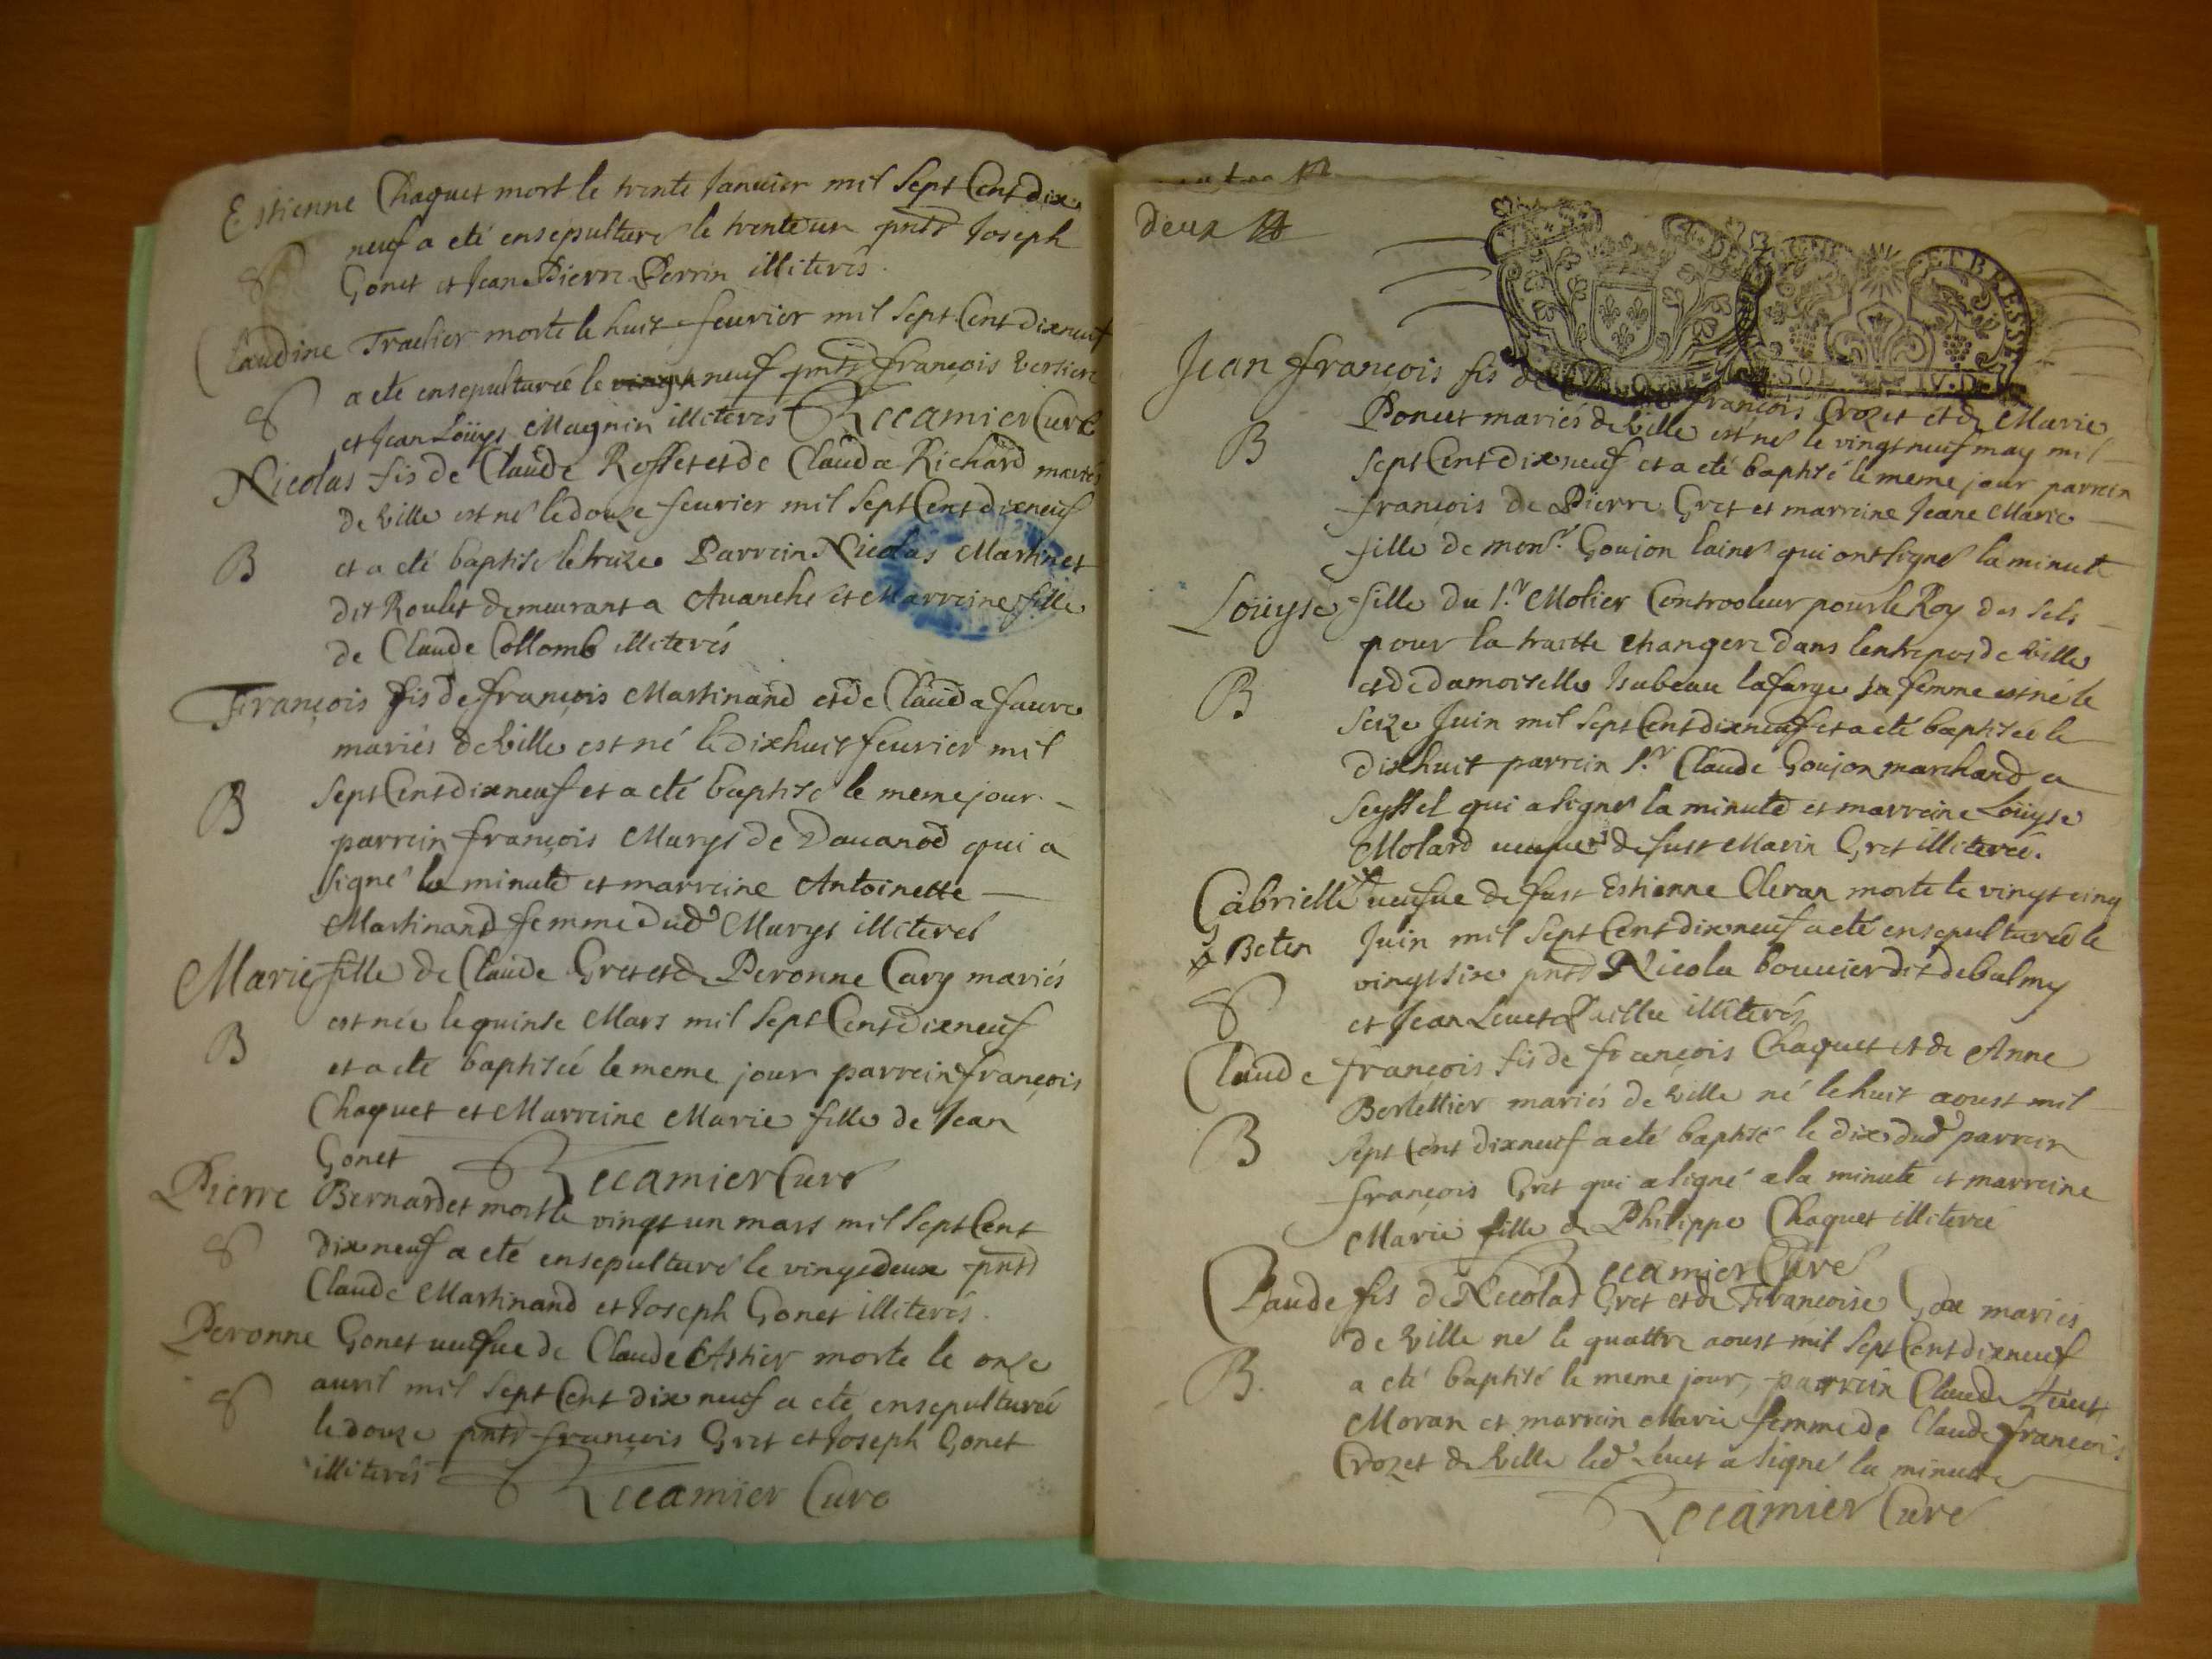 Estienne Chaquet mort le trente Januier mil sept Cent dix
neuf a eté ensepulturé le trenteun pnts Joseph
Gonet et Jean Pierre Perrin illiterés
Claudine Traclier morte le huit feurier mil sept Cent dixneuf
a eté ensepulturée le neuf pnts françois
et Jean Loüys Magnin illiterés Recamier Curé
Nicolas fis de Claude Rosset et de Clauda Richard mariés
de Ville est né le douze feurier mil sept Cent dixneuf
B et a eté baptisé le treize Parrein Nicolas Martinet
dit Roulet demeurant a Auanche et Marreine fille
de Claude Collomb illiterés
François fis de françois Martinand et de Clauda faure
mariés de Ville est né le dixhuit feurier mil
B sept Cent dixneuf et a eté baptisé le meme jour
parrein françois Murys de Dauanod qui a
signé la minute et marreine Antoinette
Martinand femme dud Murys illiterés
Marie fille de Claude Gret et de Peronne Cary mariés
est née le quinse Mars mil sept Cent dixneuf
B et a eté baptisée le meme jour parrein françois
Chaquet et Marreine Marie fille de Jean
Gonet Recamier Curé
Pierre Bernardet mort le vingt un mars mil sept Cent
dixneuf a eté ensepulturé le vingtdeux pnts
Claude Martinand et Joseph Gonet illiterés
Peronne Gonet ueufue de Claude Astier morte le onze
auril mil sept Cent dix neuf a eté ensepulturée
le douze pnts françois Gret et Joseph Gonet
illiterés Recamier Curé
deux
ET BRESSE
Jean françois fis de françois Crozet et de Marie
Ponut mariés de Ville est né le vingtneuf may mil
B sept Cent dixneuf et a eté baptisé le meme jour parrein
françois de Pierre Gret et marreine Jeane Marie
fille de monsr. Goujon lainé qui ont signé la minute
Loüyse fille du Sr. Molier Controoleur pour le Roy des sels
pour la traitte etrangere dans lentrepos de Ville
B et de damoiselle Isabeau lafarge sa femme est né le
seize Juin mil sept Cent dixneuf et a eté baptisée le
dixhuit parrein Sr. Claude Goujon marchand a
Seyssel qui a signé la minute et marreine Loüyse
Molard ueufue de fust Marin Gret illiterée.
Gabrielle ueufue de fust Estienne Cleran morte le vingtcinq
Beten Juin mil sept Cent dixneuf a eté ensepulturée le
vingtsix pnts Nicola bouuier dit debalmy
et Jean Leuet illiterés
Claude françois fis de françois Chaquet et de Anne
Bertettier mariés de Ville né le huit aoust mil
B sept Cent dixneuf a eté baptisé le dix dud parrein
françois Gret qui a signé a la minute et marreine
Marie fille de Philippe Chaquet illiterée
Recamier Curé
Claude fis de Nicolas Gret et de Francoise Gox mariés
de Ville né le quattre aoust mil sept Cent dixneuf
B. a eté baptisé le meme jour, parrein Claude Leuet
Moran et marrein Marie femme de Claude françois
Crozet de Ville led Leuet a signé la minute
Recamier Curé